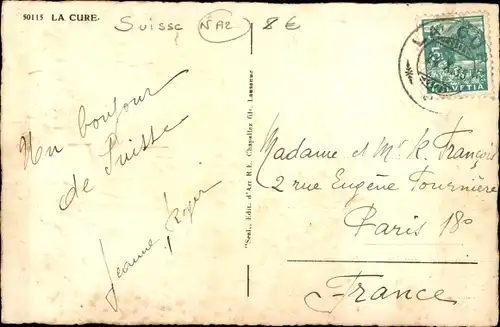 50115 LA CURE.
Suisse NA2 8€
HELVETIA
Un bonjour
de Suisse
Jeanne Roger
"Seul. Edit. d'Art R.E. Chapallaz fils, Lausanne"
Madame et Mr. R. François
2 rue Eugène Fournière
Paris 18°
France